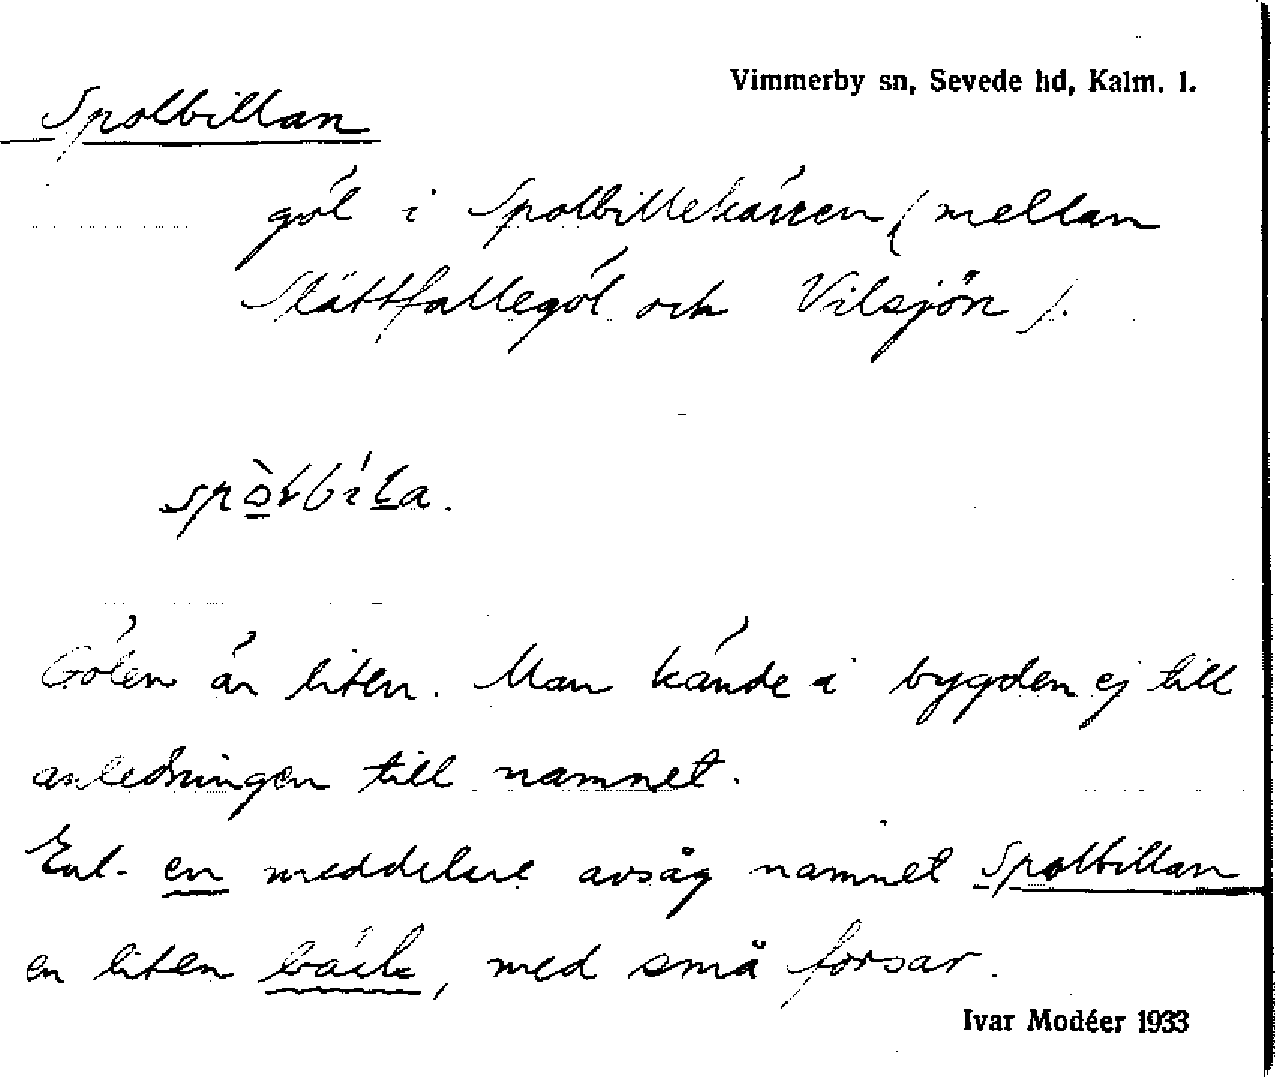 Vimmerby sn, Sevede hd, Kalm. l.
Spolbillan
göl i Spolbillekärren (mellan
Slättfallegöl och Vilsjön).
Gölen är liten. Man kände i bygden ej till
anledningen till namnet.
Enl. en meddelare avsåg namnet Spolbillan
en liten bäck, med små forsar.
Ivar Modéer 1933